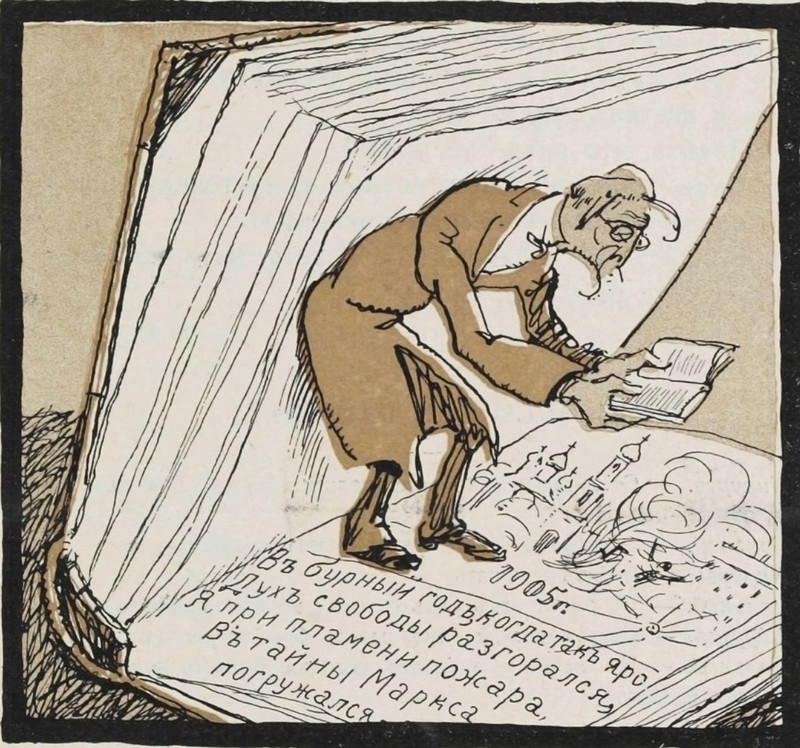 1905г.
Въ бурный годъ, когда такъ яро
Духъ свободы разгорался,
Я при пламени пожара,
Въ тайны Маркса
погружался